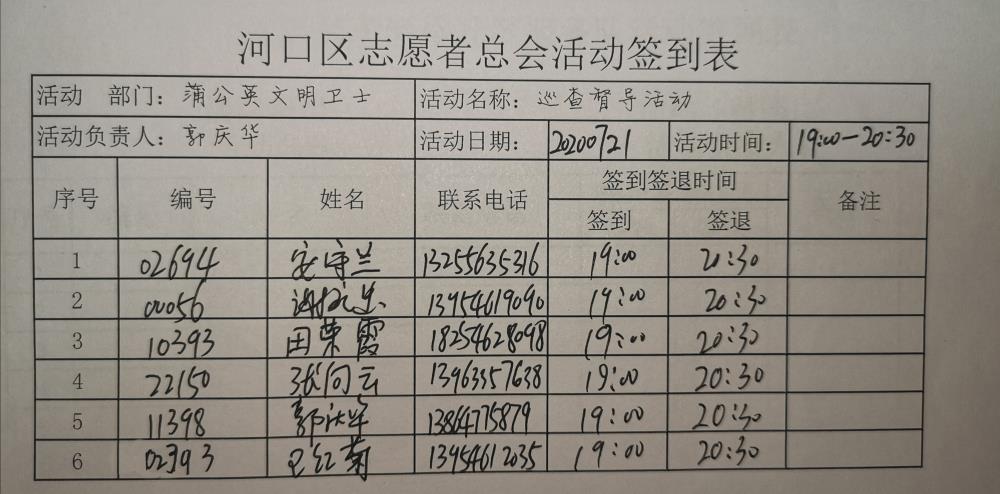 河口区志愿者总会活动签到表
活动 部门：蒲公英文明卫士 活动名称：巡查督导活动
活动负责人：郭庆华 活动日期：20200721 活动时间：19:00-20:30
序号 编号 姓名 联系电话 签到签退时间 备注
签到 签退
1 02694 安守兰 13255635316 19:00 20:30
2 00056 13954619090 19:00 20:30
3 10393 田荣霞 18254628098 19:00 20:30
4 22150 张向云 13963357638 19:00 20:30
5 11398 郭庆华 13864775879 19:00 20:30
6 02393 红菊 13954612035 19:00 20:30